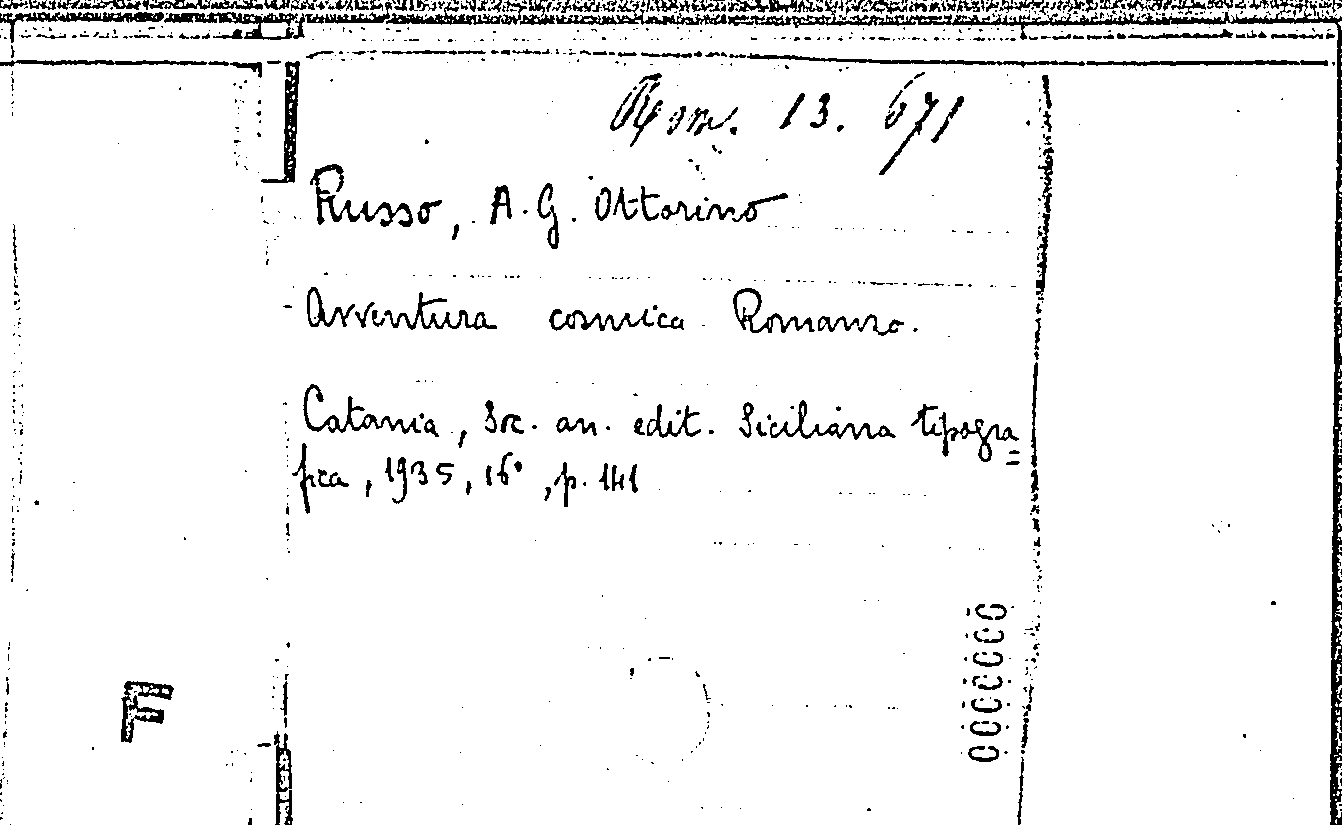 Rom. 13. 671
Russo, A. G. Ottorino
Avventura cosmica. Romanzo.
Catania, Soc. an. edit. Siciliana tipogra=
fica, 1935, 16°, p. 141
F
0000000